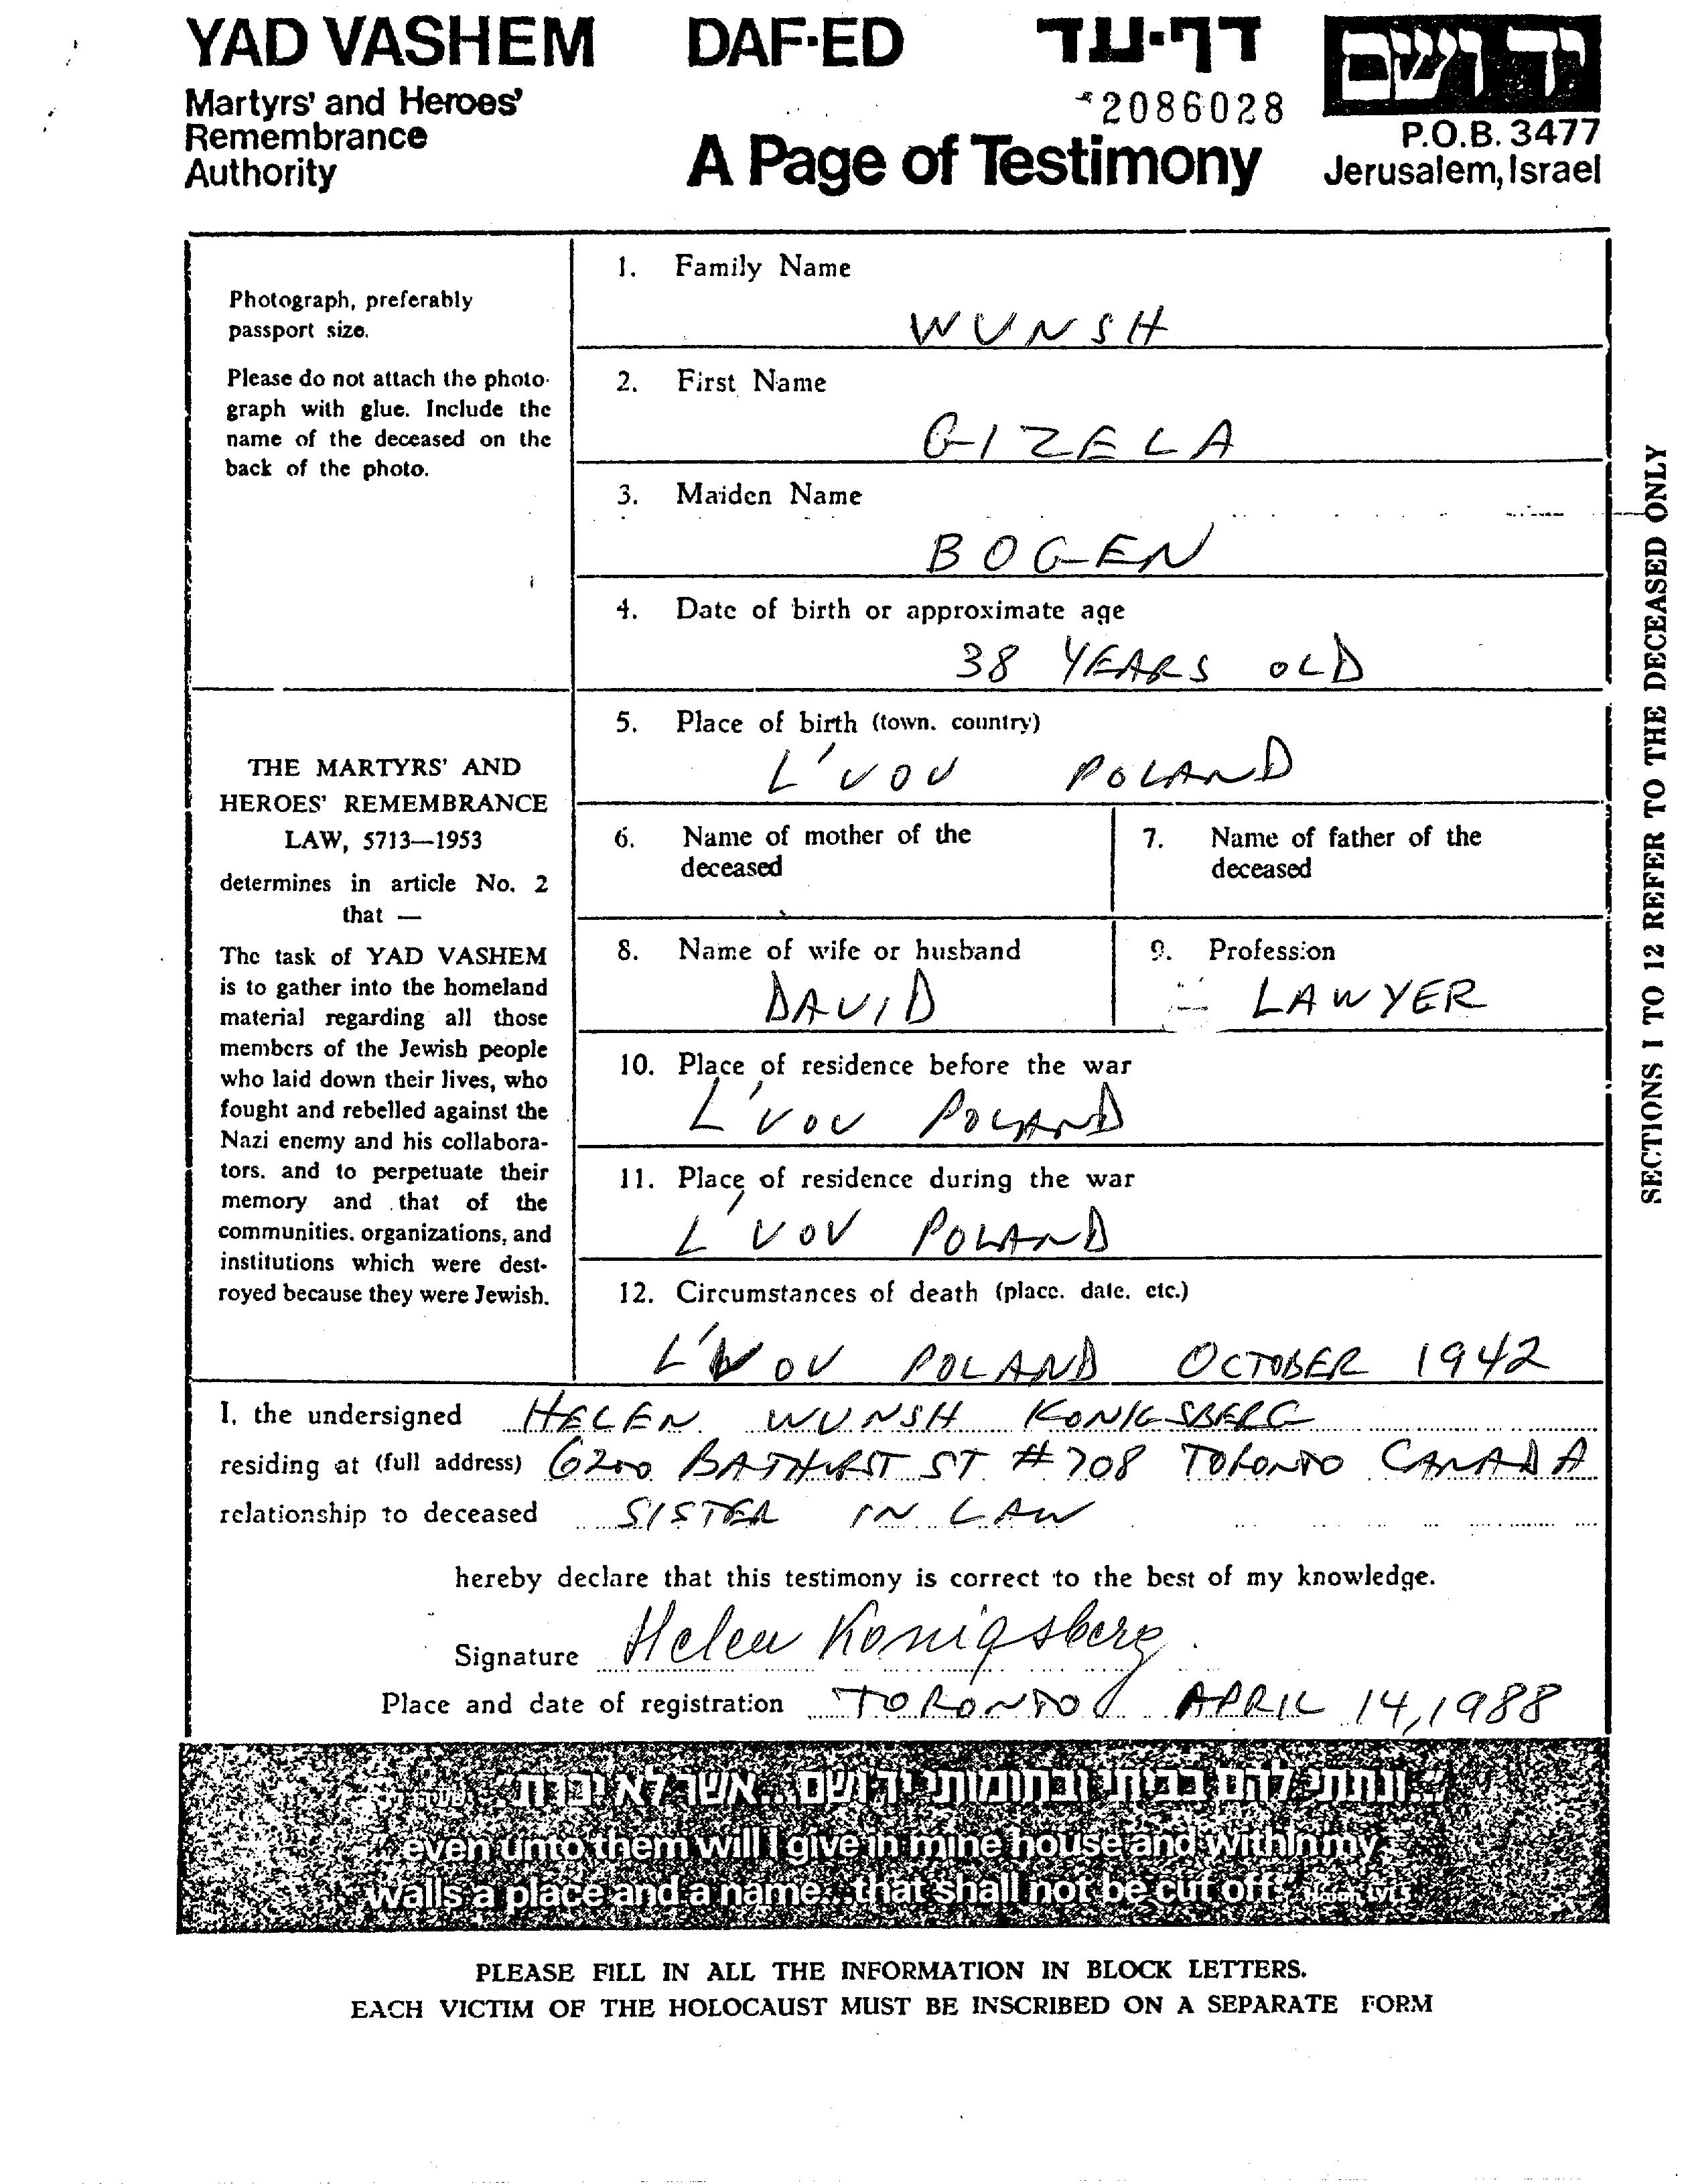 YAD VASHEM DAF-ED דף-עד יד ושם
Martyrs' and Heroes'
Remembrance
Authority
2086028
A Page of Testimony
P.O.B. 3477
Jerusalem, Israel
Photograph, preferably
passport size.
Please do not attach the photo-
graph with glue. Include the
name of the deceased on the
back of the photo.
THE MARTYRS' AND
HEROES' REMEMBRANCE
LAW, 5713—1953
determines in article No. 2
that —
The task of YAD VASHEM
is to gather into the homeland
material regarding all those
members of the Jewish people
who laid down their lives, who
fought and rebelled against the
Nazi enemy and his collabora-
tors. and to perpetuate their
memory and that of the
communities. organizations, and
institutions which were dest-
royed because they were Jewish.
1. Family Name
WUNSH
2. First Name
GIZELA
3. Maiden Name
BOGEN
4. Date of birth or approximate age
38 YEARS OLD
5. Place of birth (town. country)
L'VOV POLAND
6. Name of mother of the
deceased
7. Name of father of the
deceased
8. Name of wife or husband
DAVID
9. Profession
LAWYER
10. Place of residence before the war
L'VOV POLAND
11. Place of residence during the war
L'VOV POLAND
12. Circumstances of death (place. date. etc.)
L'VOV POLAND OCTOBER 1942
SECTIONS 1 TO 12 REFER TO THE DECEASED ONLY
I, the undersigned HELEN WUNSH KONIGSBERG
residing at (full address) 6200 BATHURST ST #708 TORONTO CANADA
relationship to deceased SISTER IN LAW
hereby declare that this testimony is correct to the best of my knowledge.
Signature Helen Konigsberg
Place and date of registration TORONTO APRIL 14, 1988
"...ונתתי להם בביתי ובחומותי יד ושם...אשר לא יכרת"
"...even unto them will I give in mine house and within my
walls a place and a name...that shall not be cut off"
PLEASE FILL IN ALL THE INFORMATION IN BLOCK LETTERS.
EACH VICTIM OF THE HOLOCAUST MUST BE INSCRIBED ON A SEPARATE FORM